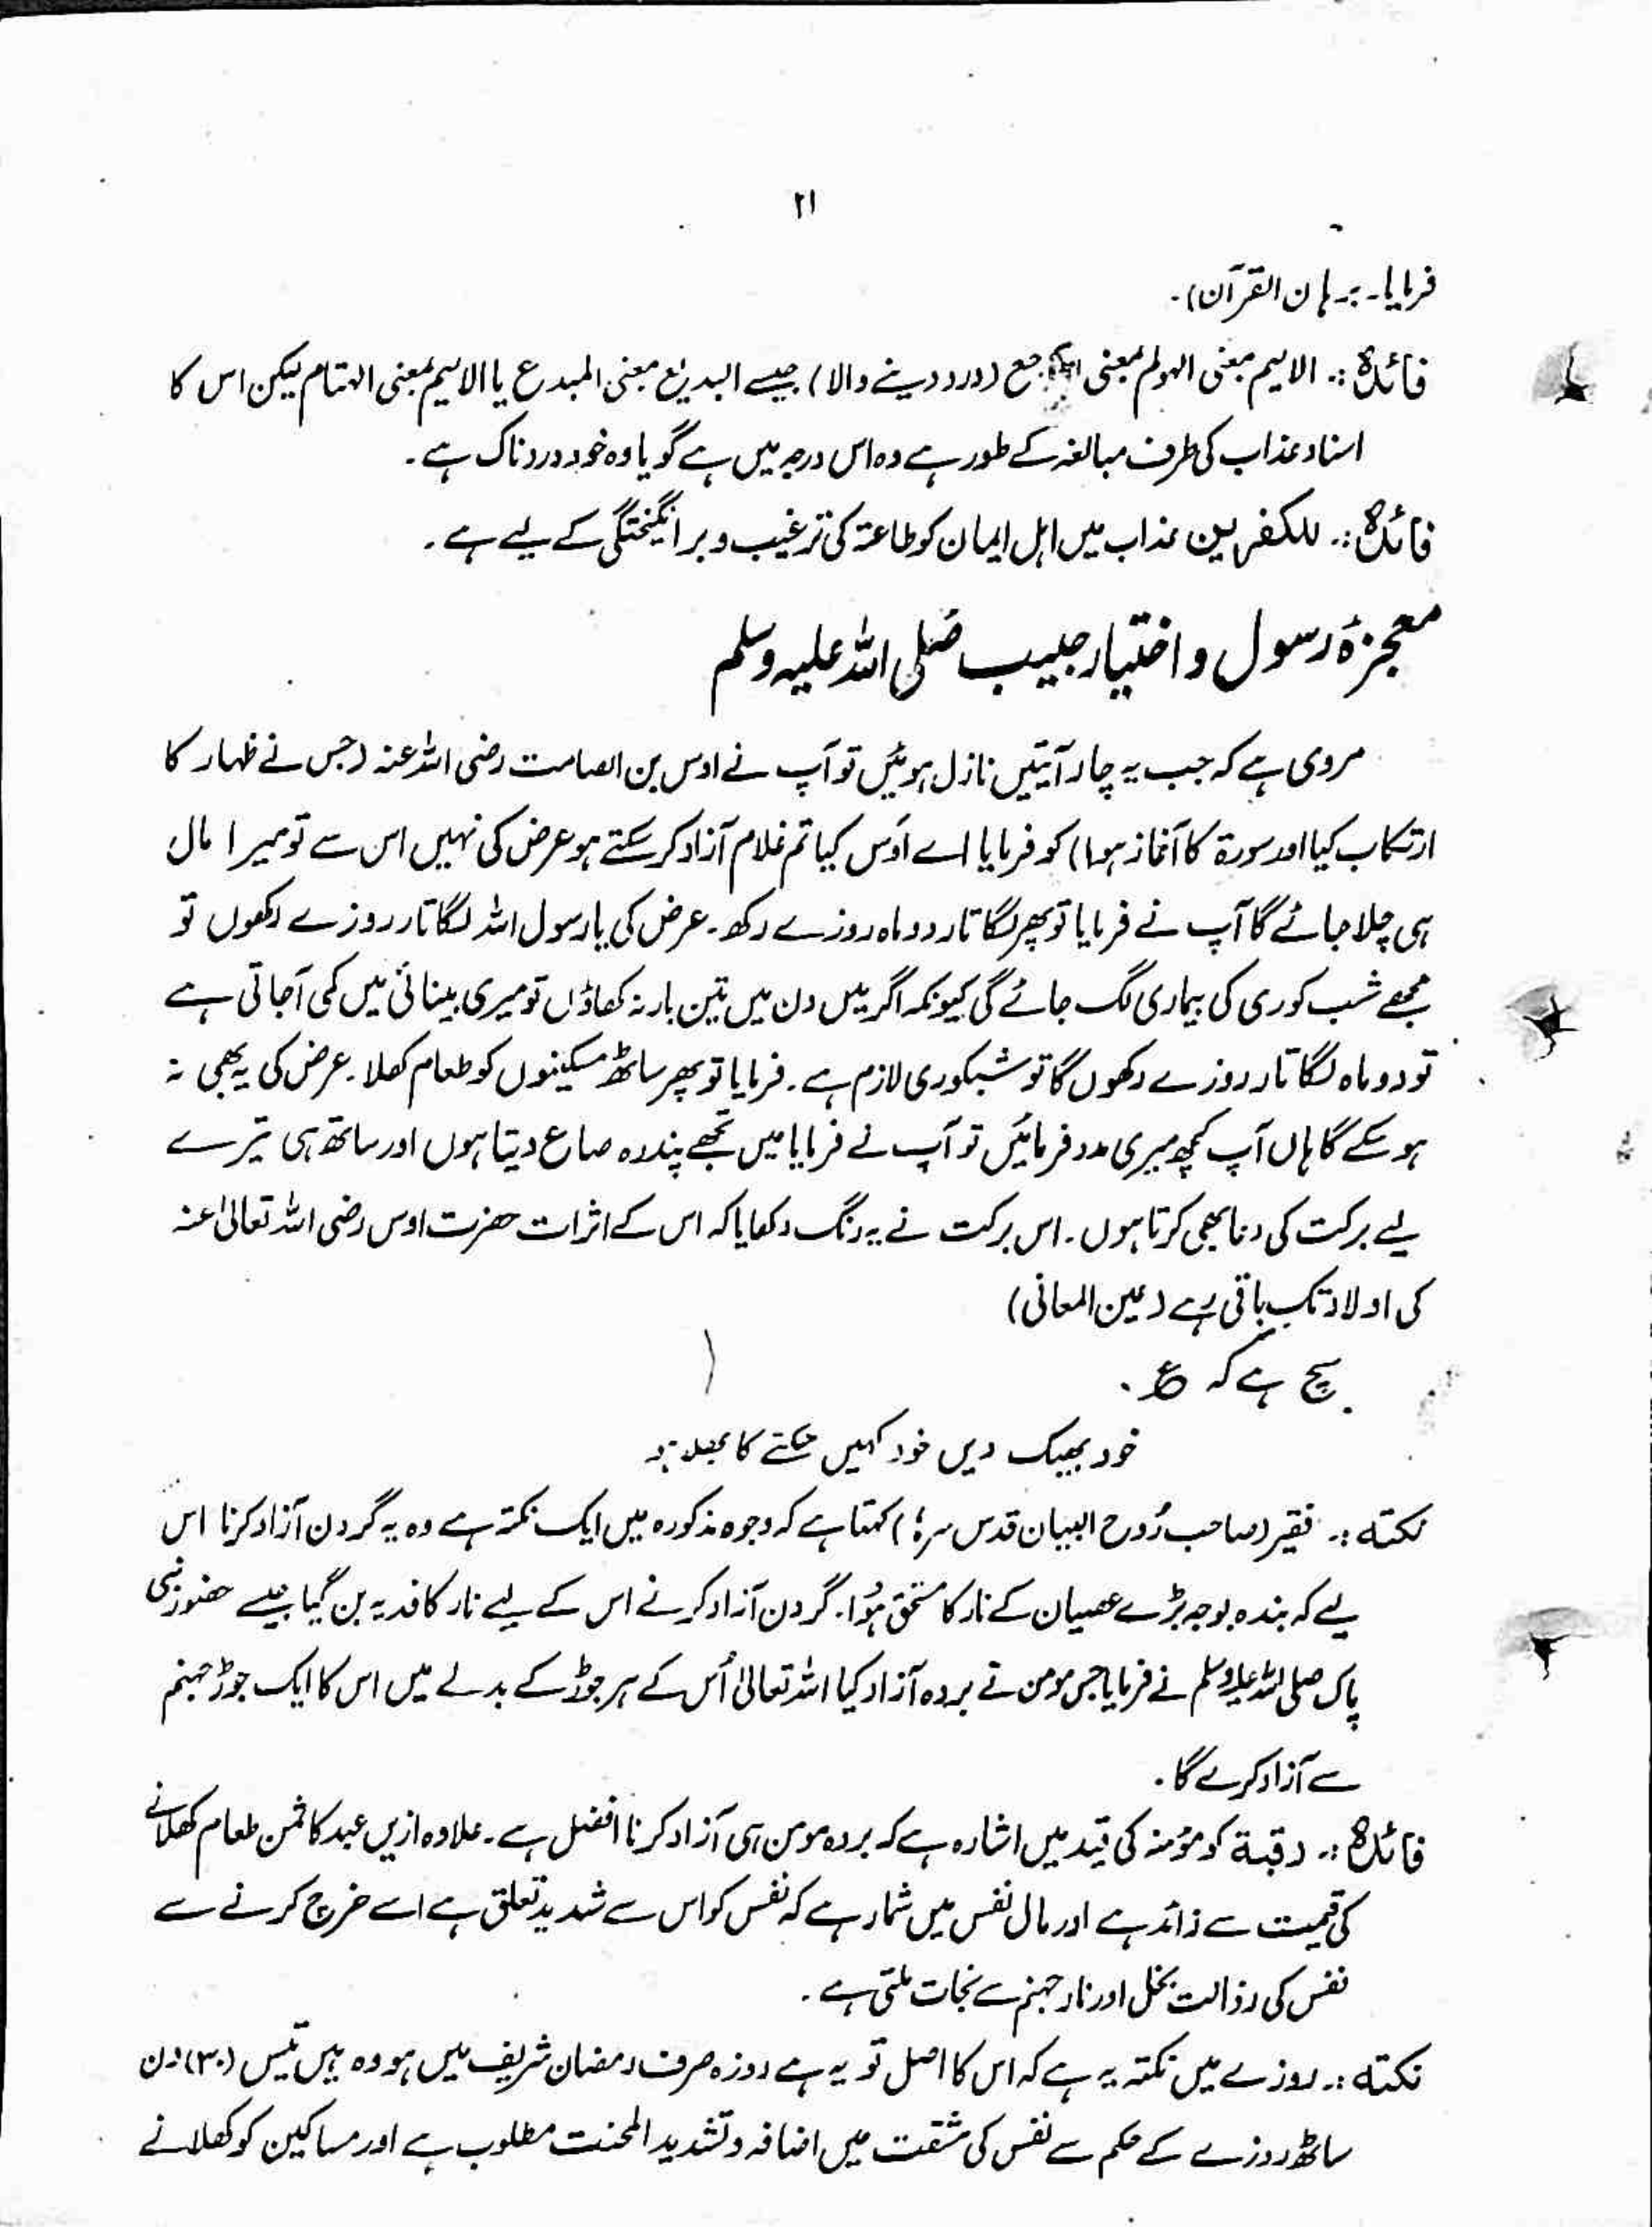 ۲۱
فرمایا۔ برہان القرآن)۔
فائدہ :۔ الالیم بمعنی المولم بمعنی جع (درد دینے والا) جیسے البدیع بمعنی المبدع یا الالیم بمعنی لیکن اس کا
اسناد عذاب کی طرف مبالغہ کے طور ہے وہ اس درجہ میں ہے گویا وہ خود دردناک ہے۔
فائدہ :۔ للکفرین عذاب میں اہل ایمان کو طاعۃ کی ترغیب و برانگیختگی کے لیے ہے۔
معجزۂ رسول و اختیار حبیب صلی اللہ علیہ وسلم
مروی ہے کہ جب یہ چار آیتیں نازل ہوئیں تو آپ نے اوس بن الصامت رضی اللہ عنہ (جس نے ظہار کا
ارتکاب کیا اور سورۃ کا آغاز ہوا) کو فرمایا اے اَوس کیا تم غلام آزاد کر سکتے ہو عرض کی نہیں اس سے تو میرا مال
ہی چلا جائے گا آپ نے فرمایا تو پھر لگاتار دو ماہ روزے رکھ۔ عرض کی یا رسول اللہ لگاتار روزے رکھوں تو
مجھے شب کوری کی بیماری لگ جائے گی کیونکہ اگر میں دن میں تین بار نہ کھاؤں تو میری بینائی میں کمی آجاتی ہے
تو دو ماہ لگاتار روزے رکھوں گا تو شبکوری لازم ہے۔ فرمایا تو پھر ساٹھ مسکینوں کو طعام کھلا۔ عرض کی یہ بھی نہ
ہو سکے گا ہاں آپ کچھ میری مدد فرمائیں تو آپ نے فرمایا میں تجھے پندرہ صاع دیتا ہوں اور ساتھ ہی تیرے
لیے برکت کی دعا بھی کرتا ہوں۔ اس برکت نے یہ رنگ دکھایا کہ اس کے اثرات حضرت اوس رضی اللہ تعالیٰ عنہ
کی اولاد تک باقی رہے (عین المعانی)
سچ ہے کہ ع۔
خود بھیک دیں خود کہیں منگتے کا بھلا ہو
نکتہ :۔ فقیر (صاحب رُوح البیان قدس سرہٗ) کہتا ہے کہ وجوہ مذکورہ میں ایک نکتہ ہے وہ یہ گردن آزاد کرنا اس
لیے کہ بندہ بوجہ بڑے عصیان کے نار کا مستحق ہُوا۔ گردن آزاد کرنے اس کے لیے نار کا فدیہ بن گیا جیسے حضور نبی
پاک صلی اللہ علیہ وسلم نے فرمایا جس مومن نے بردہ آزاد کیا اللہ تعالیٰ اُس کے ہر جوڑ کے بدلے میں اس کا ایک جوڑ جہنم
سے آزاد کرے گا۔
فائدہ :۔ رقبة کو مؤمنہ کی قید میں اشارہ ہے کہ بردہ مومن ہی آزاد کرنا افضل ہے۔ علاوہ ازیں عبد کا ثمن طعام کھلانے
کی قیمت سے زائد ہے اور مال نفس میں شمار ہے کہ نفس کو اس سے شدید تعلق ہے اسے خرچ کرنے سے
نفس کی رذالت بخل اور نار جہنم سے نجات ملتی ہے۔
نکتہ :۔ روزے میں نکتہ یہ ہے کہ اس کا اصل تو یہ ہے روزہ صرف رمضان شریف میں ہو وہ ہیں تیس (۳۰) دن
ساٹھ روزے کے حکم سے نفس کی مشقت میں اضافہ و تشدید المحنت مطلوب ہے اور مساکین کو کھلانے